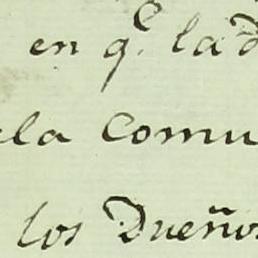 en q.e la d
ela Comu
los Dueños